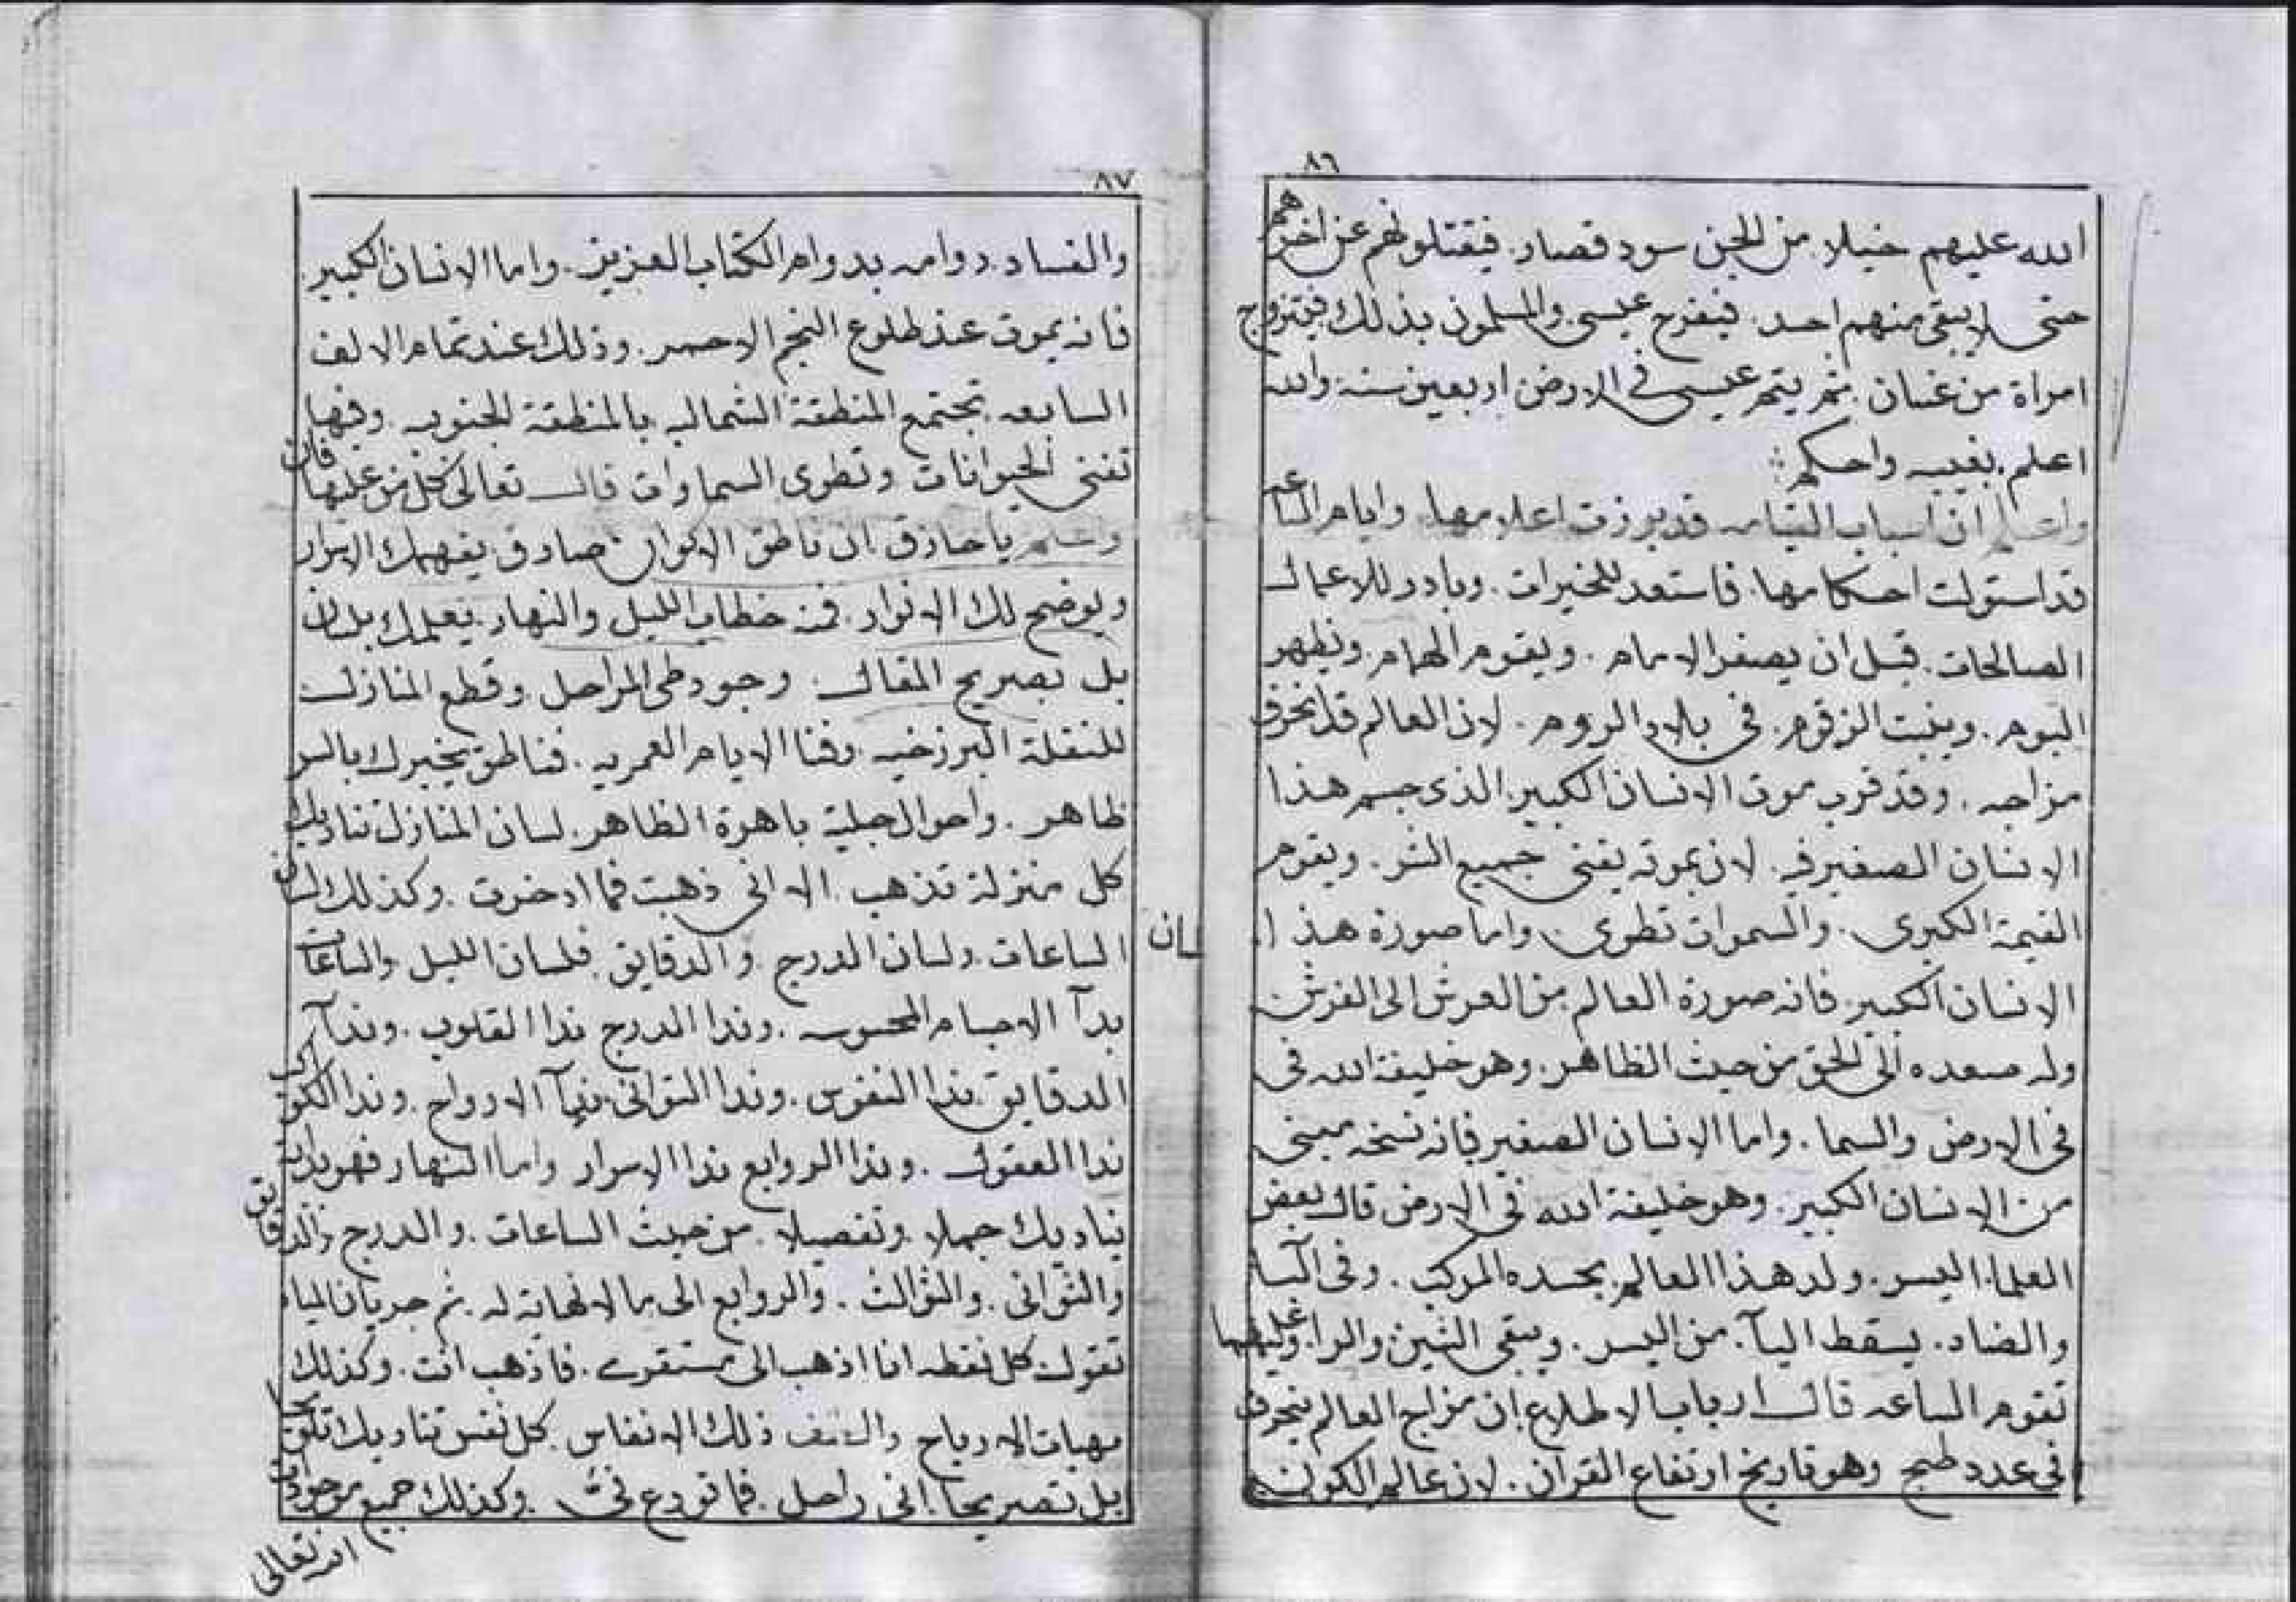 ٨٦
الله عليهم خيلا من الجن سود قصار. فيقتلونهم عن اخرهم
حتى لا يبقى منهم احد. فيفرح عيسى والمسلمون بذلك فيتزوج
امراة من غسان. ثم يتم عيسى فى الارض اربعين سنة والله
اعلم بغيبه واحكم
واعلم ان اسباب القيامه قد برزت اعلامها. وايام الساعه
قد استولت احكامها. فاستعد للخيرات. وبادر للاعمال
الصالحات. قبل ان يصفر الامام. ويقوم الهمام. ويظهر
البوم. وينبت الزقوم. فى بلاد الروم. لان العالم قد انحرف
مزاجه. وقد قرب موت الانسان الكبير. الذى جسم هذا
الانسان الصغير فيه. لان بموته يفنى جميع النشو. ويقوم
القيمة الكبرى. والسموات تطوى. واما صورة هذا
الانسان الكبير. فانه صورة العالم من العرش الى الفرش
وله صعده الى الحق من حيث الظاهر. وهو خليفة الله فى
فى الارض والسما. واما الانسان الصغير فانه نسخه مبنى
من الانسان الكبير. وهو خليفة الله فى الارض قال بعض
العلما. اليسر. ولد هذا العالم بجسده المركب. وفى
والضاد. يسقط اليآ. من اليسر. ويبقى الشين والرا. وعليهما
تقوم الساعه قال ارباب الاطلاع ان مزاج العالم ينحرف
فى عدد طبج وهو تاريخ ارتفاع القران. لان عالم الكون
٨٧
والفساد. دوامه بدوام الكتاب العزيز. واما الانسان الكبير
فانه يموت عند طلوع النجم الاحمر. وذلك عند تمام الالف
السابعه. تجتمع المنطقة الشماليه بالمنطقة الجنوب. وفيها
تفنى الحيوانات وتطوى السماوات قال تعالى كل من عليها فان
واعلم يا حاذق ان ناطق الاكوان صادق يفهمك الاسرار
ويوضح لك الانوار. فمن خطاب الليل والنهار. يعلمك بلسان
بل بصريح المقال. وجود طى المراحل وقطع المنازل
للنقلة البرزخيه. وفنا الايام العمريه. فناطق يخبرك بالسر
ظاهر. واحوال جلية باهرة الظاهر. لسان المنازل تناديك
كل منزلة تذهب. الا انى ذهبت فما ادخرت. وكذلك لسان
الساعات. ولسان الدرج. والدقايق. فلسان الليل والساعات
بدآ الاجسام المحسوسه. وندا الدرج ندا القلوب. وندآ
الدقايق ندا النفوس. وندا الثوانى ندآ الارواح. وندا
ندا العقول. وندا الروابع ندا الاسرار واما النهار فهو بدانه
يناديك جملا. وتفصيلا. من حيث الساعات. والدرج والدقايق
والثوانى. والثوالث. والروابع الى ما لا نهاية له. ثم جريان المياه
تقول كل نقطه انا اذهب الى مستقرى. فاذهب انت. وكذلك
مهبات الارياح ذلك الانفاس. كل نفس تناديك
بل تصريحا. انى راحل. فما تودع فىّ. وكذلك جميع موجودات
الله تعالى